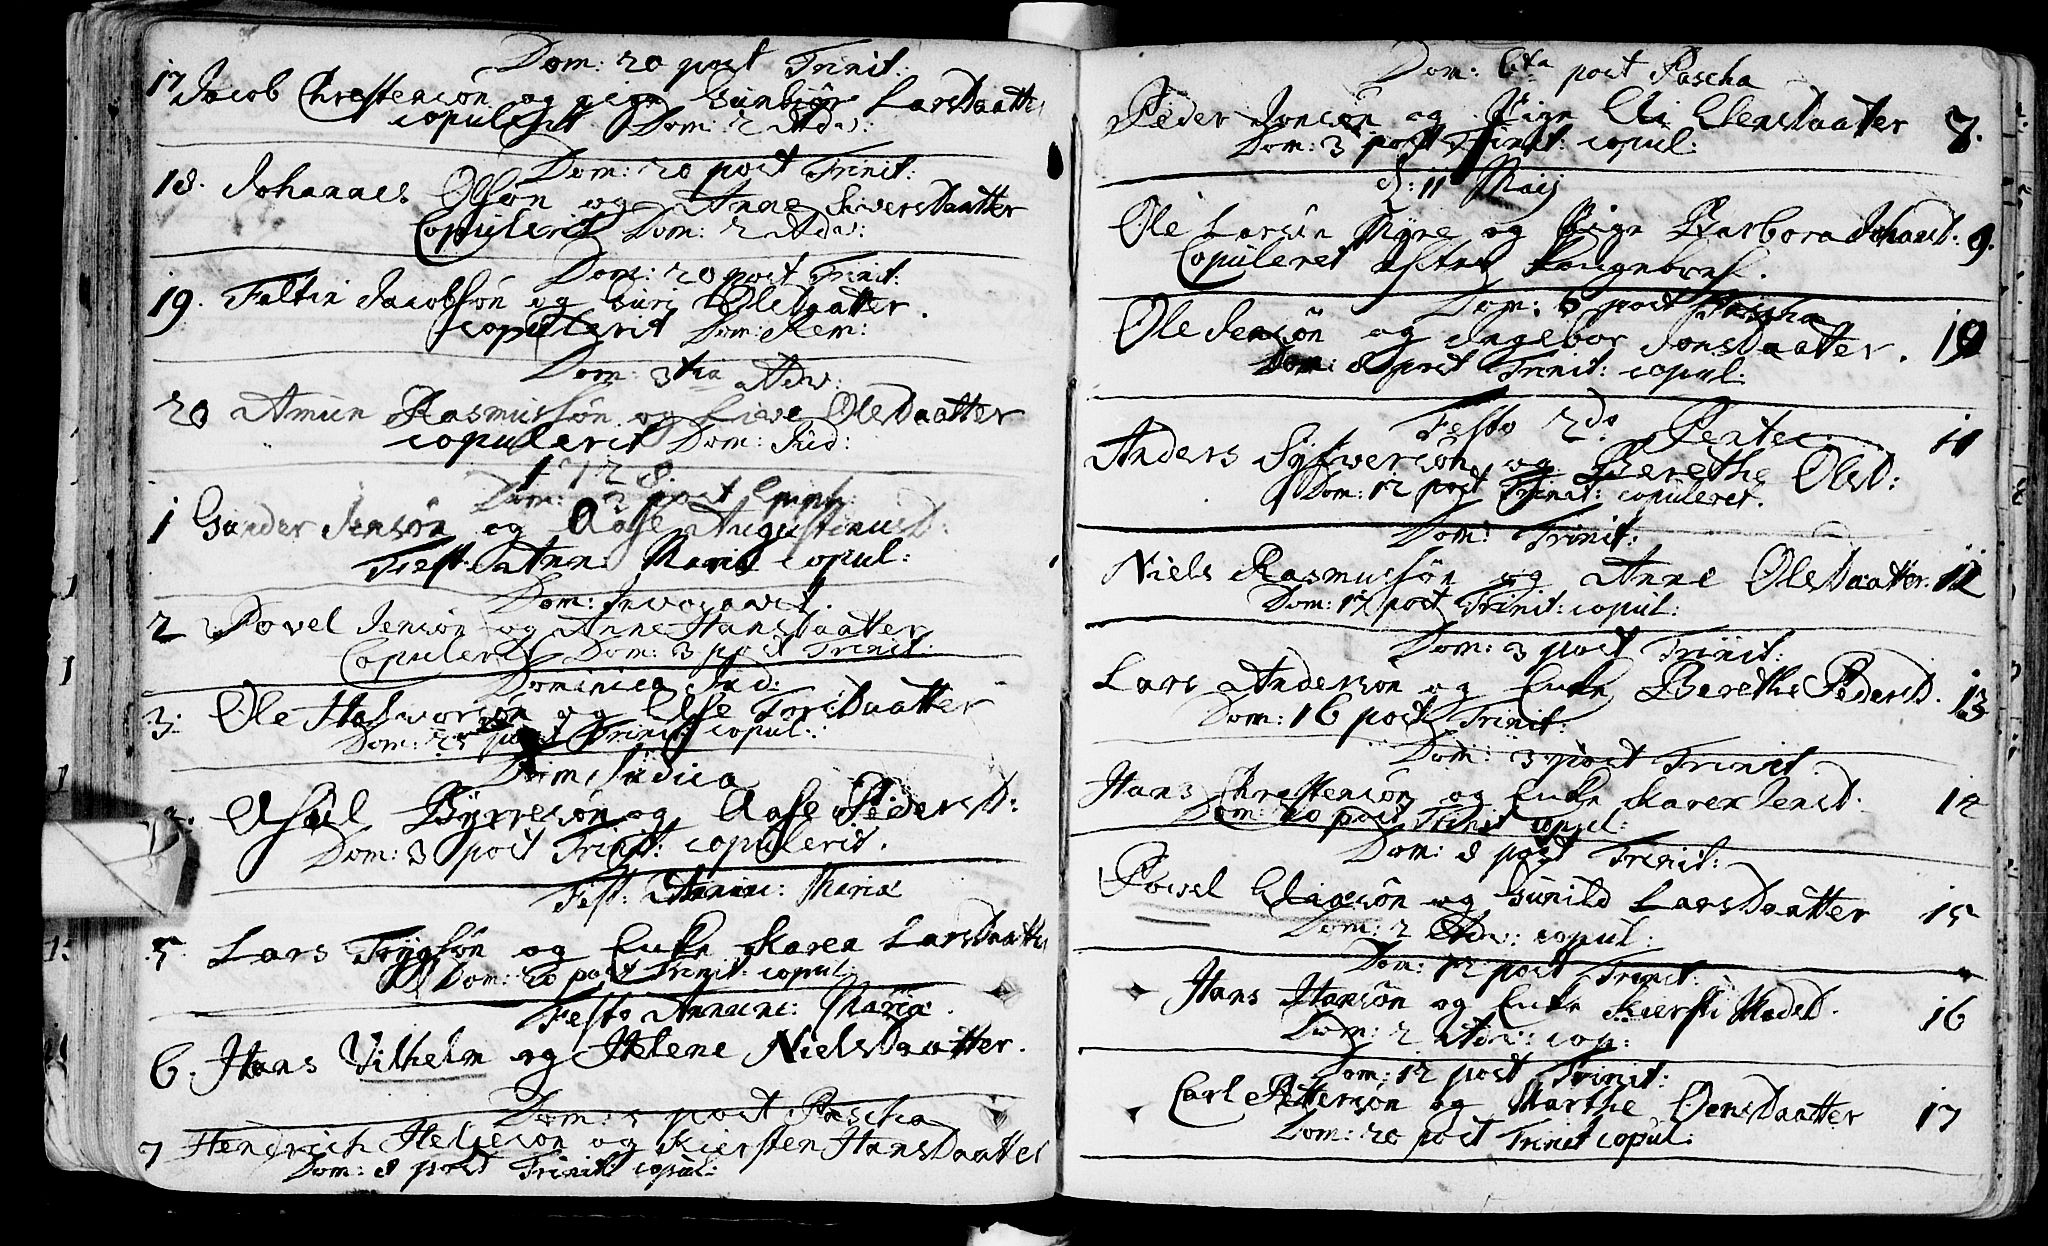 Dom: 20 post Trinit:
17 Jacob Chrestensøn og pige Gunbiør Larsdaatter
copulerit Dom: 2 Adv:
Dom: 20 post Trinit:
18. Johannes Olsøn og Anne Siversdaatter
Copulerit Dom: 2 Adv:
Dom: 20 post Trinit:
19. Faltin Jacobsøn og Guri Olesdaatter.
copulerit Dom: Rem:
Dom: 3tia Adv:
20 Amun Rasmussøn og Live Olesdaatter
copulerit Dom: Jud:
1728.
Dom: 2 post Epiph:
1 Gunder Jensøn og Aase Augustinusd:
Fest: Ann: Mariæ copul:
Dom: Invocavit.
2 Povel Jensøn og Anne Hansdaatter
Copulerit Dom: 3 post Trinit:
Dominica Jud:
3: Ole Halworsøn og Else Toresdaatter
Dom: 25 post Trinit: copul:
Dom: Judica
Asûl Byrresøn og Aase Pedersd:
Dom: 3 post Trinit: copulerit.
Fest: Annunc: Mariæ
5. Lars Trygsøn og Enke Karen Larsdaatter
Dom: 20 post Trinit: copul:
Festo Annunc: Mariæ.
6. Hans Vilhelm og Helene Nielsdaatter.
Dom: 5 post Pascha
7 Hendrich Helgesøn og Kiersten Hansdaatter
Dom: 8 post Trinit: copul:
Dom: 6ta post Pascha
Peder Jonsøn og Pige Eli Elensdaatter 7.
Dom: 3 post Trinit: copul:
d: 11 Maij
Ole Larsøn Myre og Pige Barbora Johansd: 9.
Copuleret
Dom: 6 post Pascha
Ole Jensøn og Ingebor Jonsdaatter. 10
Dom: 8 post Trinit: copul:
Festo 2do Pentec:
Anders Syfwersøn og Berethe Olsd: 11
Dom: 12 post Trinit: copuleret.
Dom: Trinit:
Niels Rasmussøn og Anne Olesdaatter. 12
Dom: 17 post Trinit: copul:
Dom: 3 post Trinit:
Lars Andersøn og Enke Berethe Pedersd. 13
Dom: 16 post Trinit:
Dom: 3 post Trinit.
Hans Chrestensøn og Enke Karen Jensd: 14
Dom: 20 post Trinit copul:
Dom: 8 post Trinit:
Povel Eliasøn og Gunild Larsdaatter 15
Dom: 2 Adv: copul:
Dom: 12 post Trinit:
Hans Hansøn og Enke Kiersti Madsd. 16
Dom: 2 Adv: cop:
Dom: 12 post Trinit:
Carl Pettersøn og Marthe Oensdaatter 17
Dom: 20 post Trinit copul: